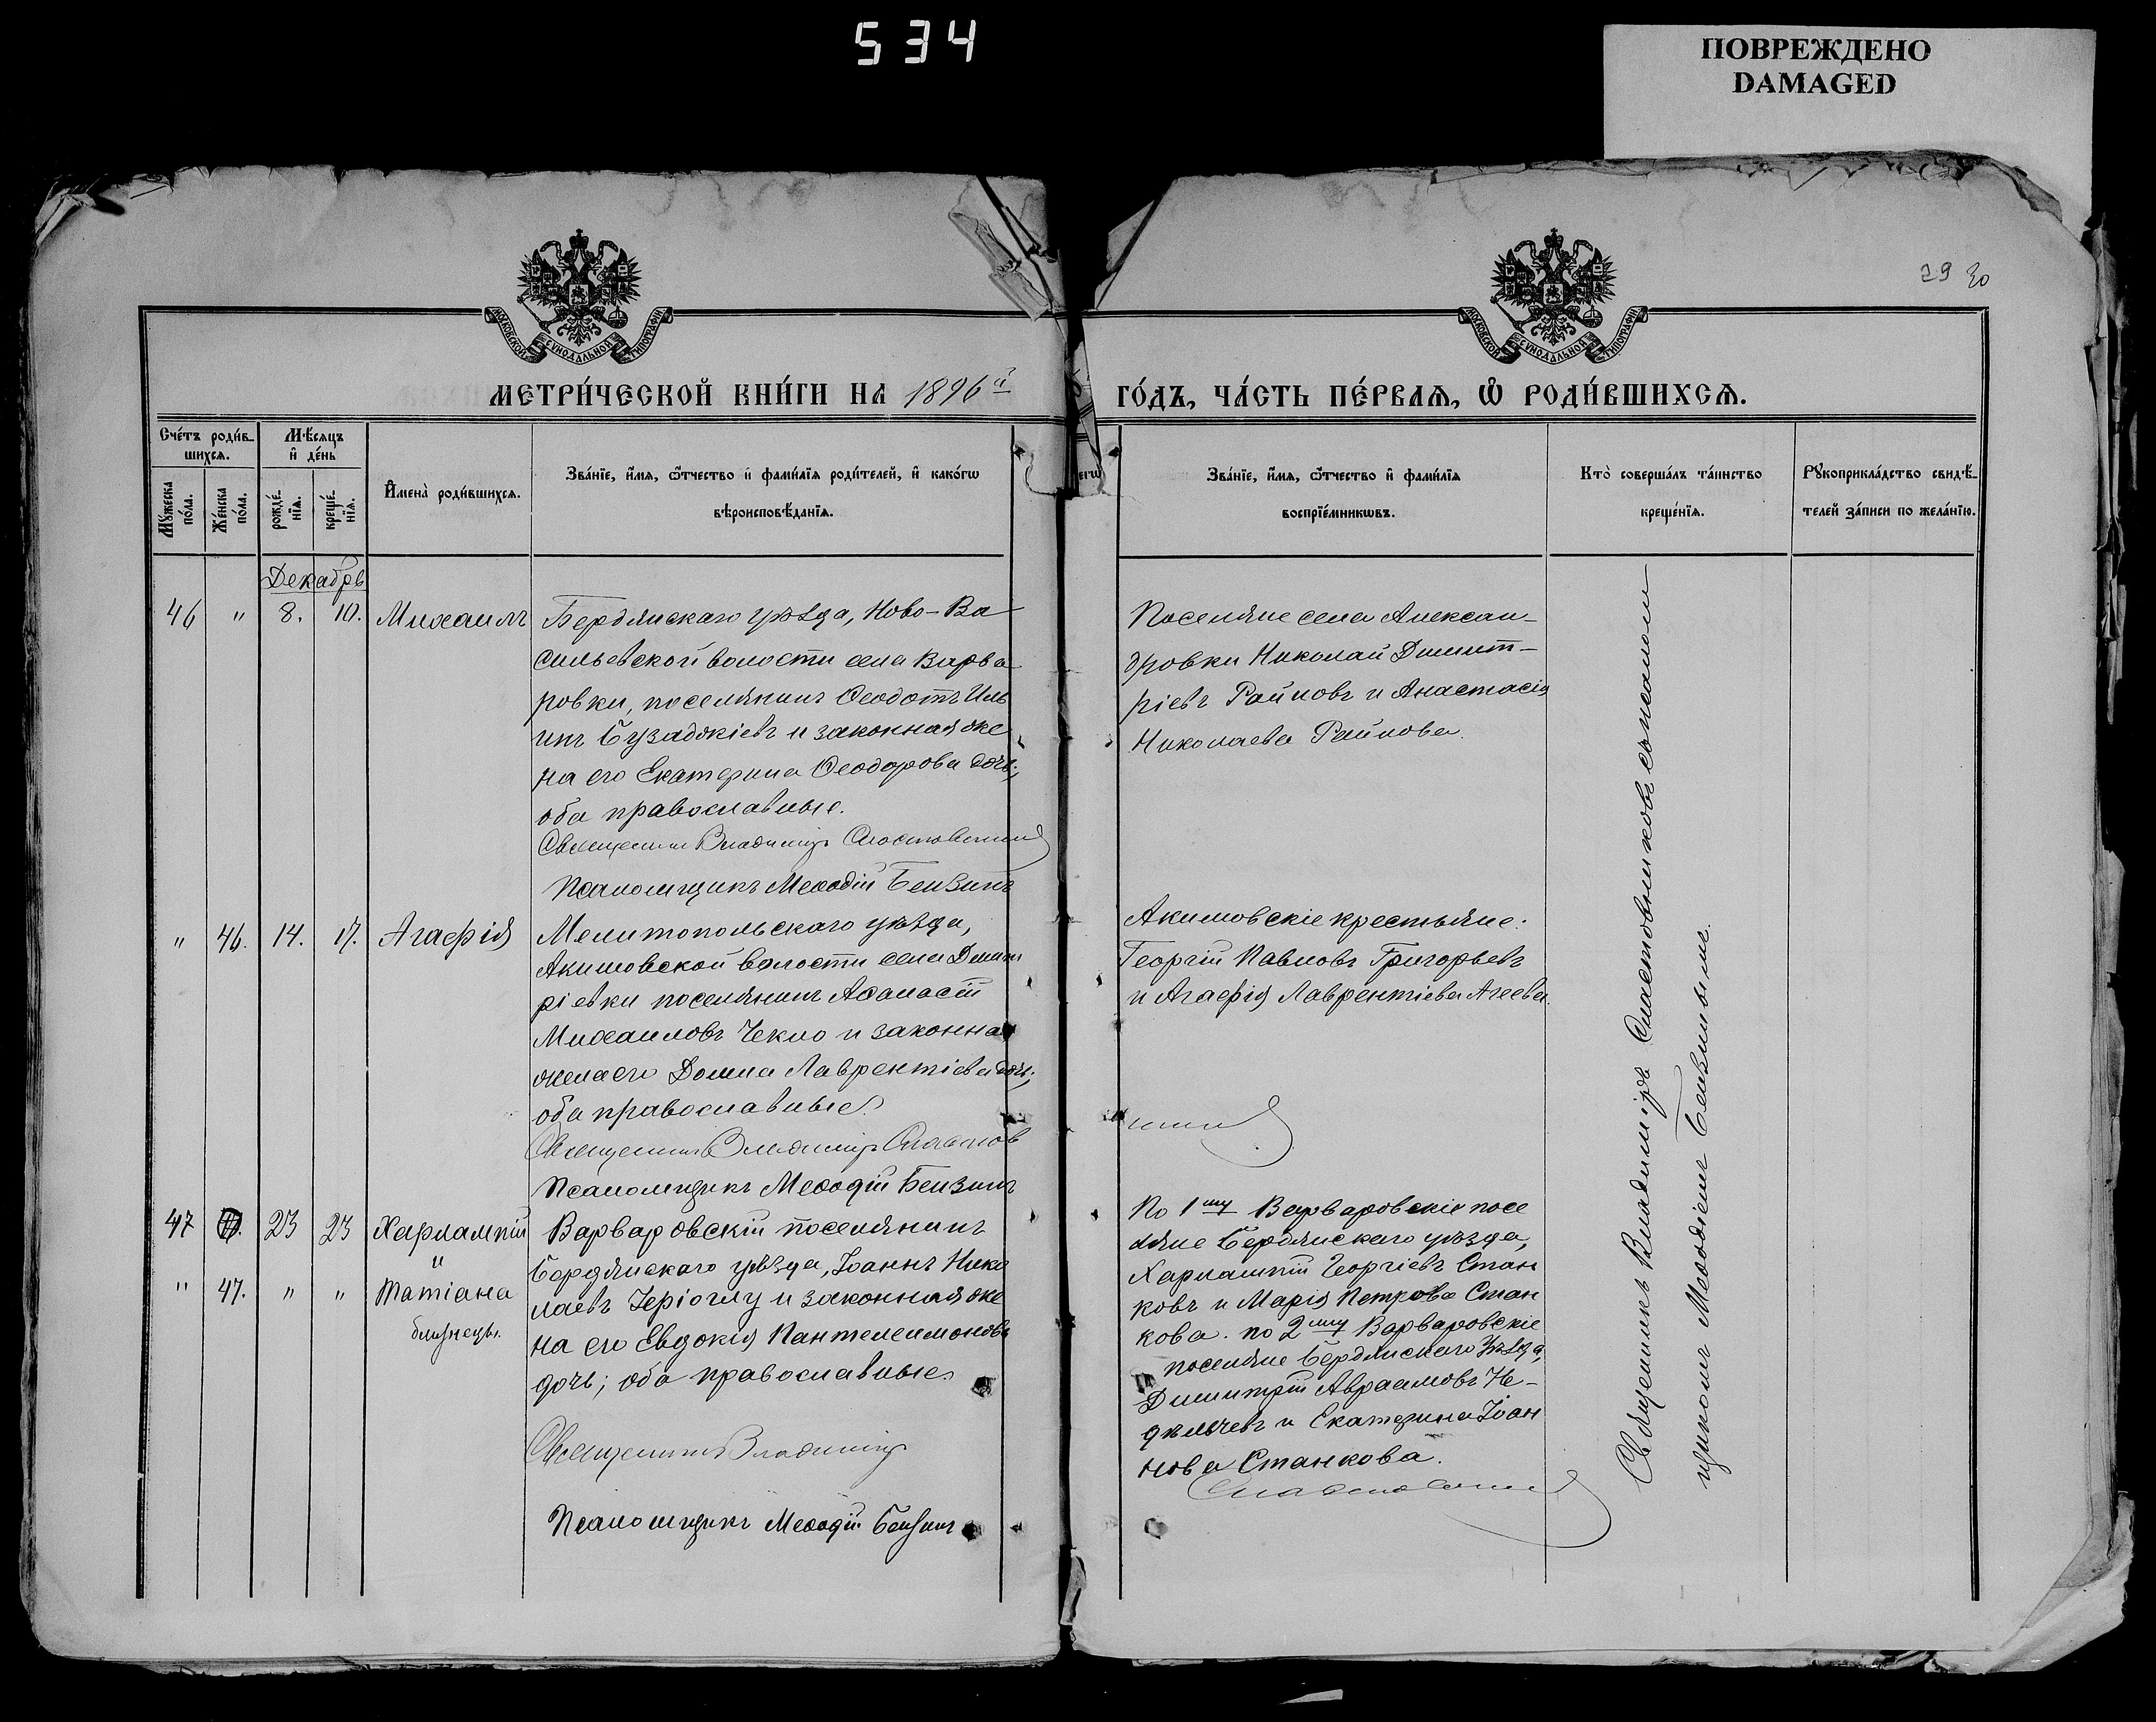 534
ПОВРЕЖДЕНО
DAMAGED
29 30
МОСКОВСКОЙ СѴНОДАЛЬНОЙ ТИПОГРАФІИ
МОСКОВСКОЙ СѴНОДАЛЬНОЙ ТИПОГРАФІИ
МЕТРИ́ЧЕСКОЙ КНИ́ГИ НА 1896й
ГО́ДЪ, ЧА́СТЬ ПЕ́РВАѦ, Ѡ РОДИ́ВШИХСѦ.
Сче́тъ роди́в-
шихсѧ.
Мѣ́сѧцъ
и҆ де́нь
Мꙋжеска по́ла.
Же́нска по́ла.
рожде́-
нїѧ.
креще́-
нїѧ.
И҆мена̀ роди́вшихсѧ.
Зва́нїе, и҆́мѧ, ѻ҆́тчество и҆ фами́лїѧ роди́телей, и҆ како́гѡ
вѣроисповѣ́данїѧ.
Зва́нїе, и҆́мѧ, ѻ҆́тчество и҆ фами́лїѧ
воспрїе́мникѡвъ.
Кто̀ соверша́лъ та́инство
креще́нїѧ.
Рꙋкоприкла́дство свидѣ́-
телей за́писи по жела́нїю.
Декабрь
46 " 8. 10. Михаилъ
Бердянскаго уѣзда, Ново-Ва
сильевской волости села Варва
ровки, поселянинъ Ѳеодотъ Иль
инъ Бузаджіевъ и законная же
на его Екатерина Ѳеодорова дочь;
оба православные.
Священникъ Владиміръ
Псаломщикъ Меѳодій Бензинъ
Поселяне села Алексан-
дровки Николай Димит-
ріевъ Райновъ и Анастасія
Николаева Райнова.
" 46. 14. 17. Агафія
Мелитопольскаго уѣзда,
Акимовской волости села Димит
ріевки поселянинъ Аѳанасій
Михаиловъ Чекло и законная
жена его Домна Лаврентіева дочь;
оба православные.
Священникъ Владиміръ
Псаломщикъ Меѳодій Бензинъ
Акимовскіе крестьяне:
Георгій Павловъ Григорьевъ
и Агафія Лаврентіева Агеева.
47 23 23 Харлампій
и
" 47. " " Татіана
близнецы.
Варваровскій поселянинъ
Бердянскаго уѣзда, Іоаннъ Нико
лаевъ Теріоглу и законная же
на его Евдокія Пантелеимонова
дочь; оба православные
Священникъ Владиміръ
Псаломщикъ Меѳодій Бензинъ
По 1му Варваровскіе посе
ляне Бердянскаго уѣзда,
Харлампій Георгіевъ Стан
ковъ и Марія Петрова Стан
кова. по 2му Варваровскіе
поселяне Бердянскаго Уѣзда,
Димитрій Авраамовъ Не-
дѣльчевъ и Екатерина Іоан
нова Станкова.
Священникъ Владиміръ съ псаломъ
щикомъ Меѳодіемъ Бензинымъ.